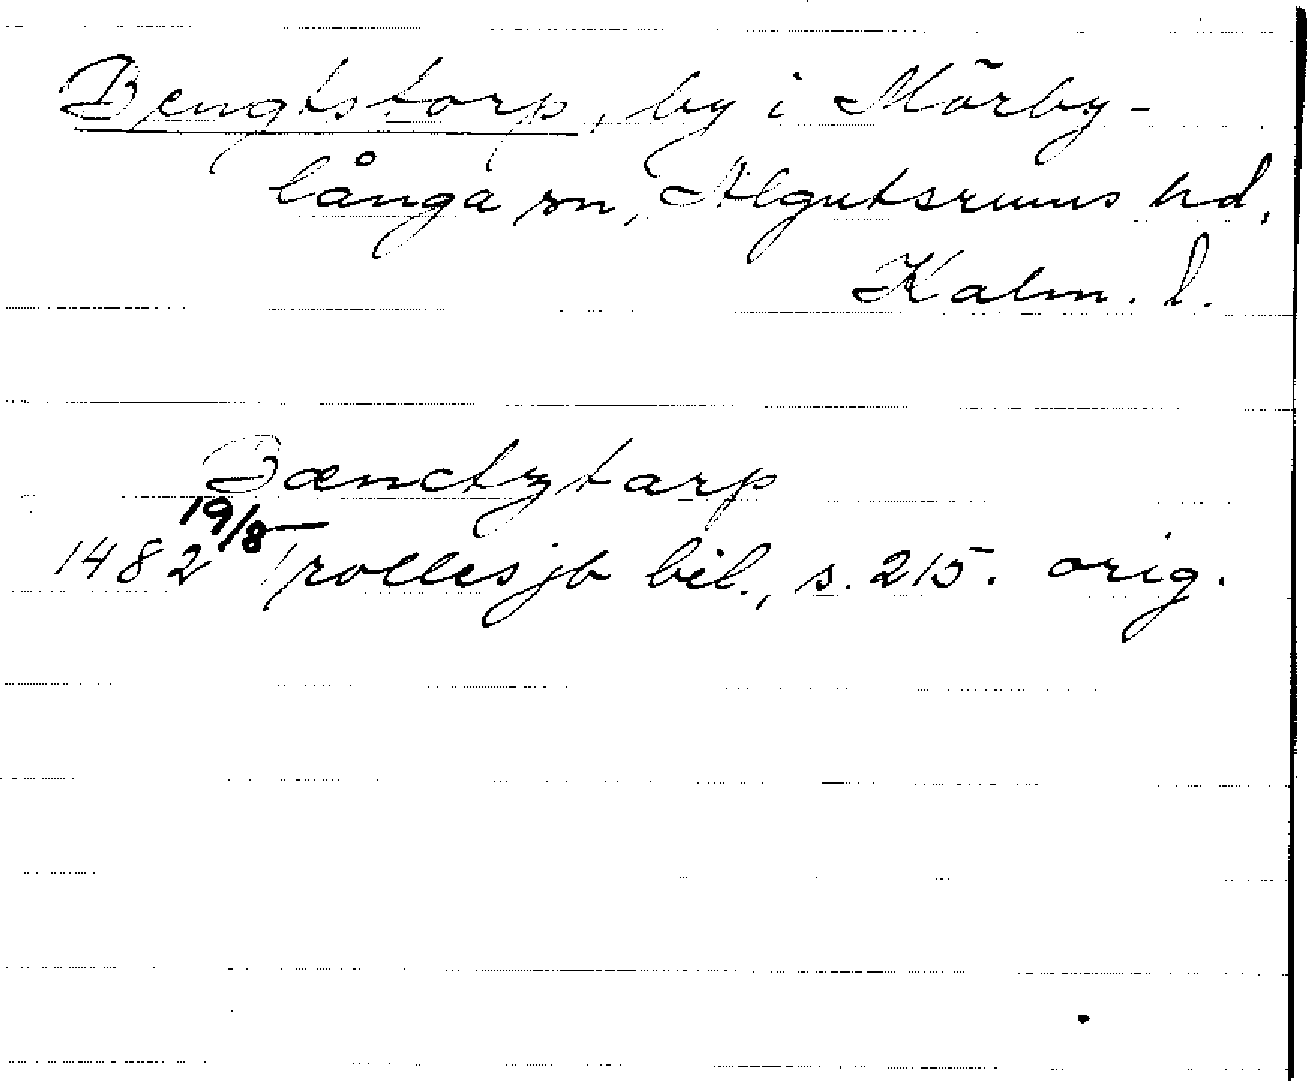 Bengtstorp, by i Mörby-
långa sn, Algutsrums hd,
Kalm. l.
Bænctztarp
1482 19/8 Trolles jb bil., s. 215. orig.